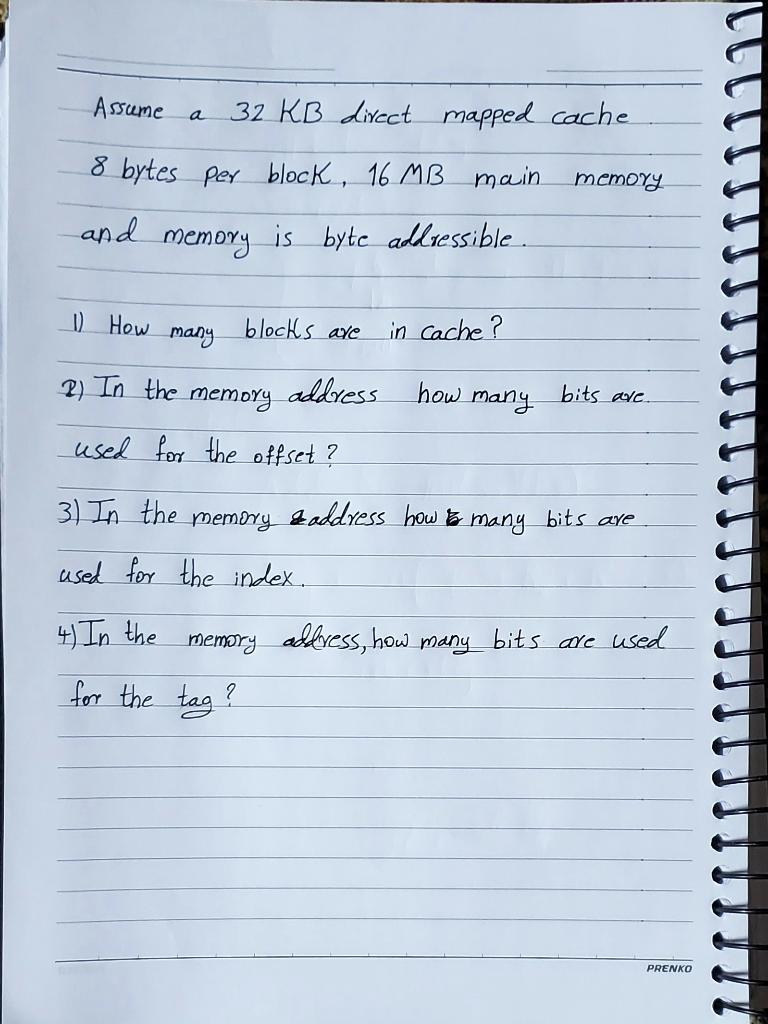 Assume a 32 KB direct mapped cache
8 bytes per block, 16 MB main memory
and memory is byte addressible.
1) How many blocks are in cache?
2) In the memory address how many bits are
used for the offset?
3) In the memory address how many bits are
used for the index.
4) In the memory address, how many bits are used
for the tag?
PRENKO